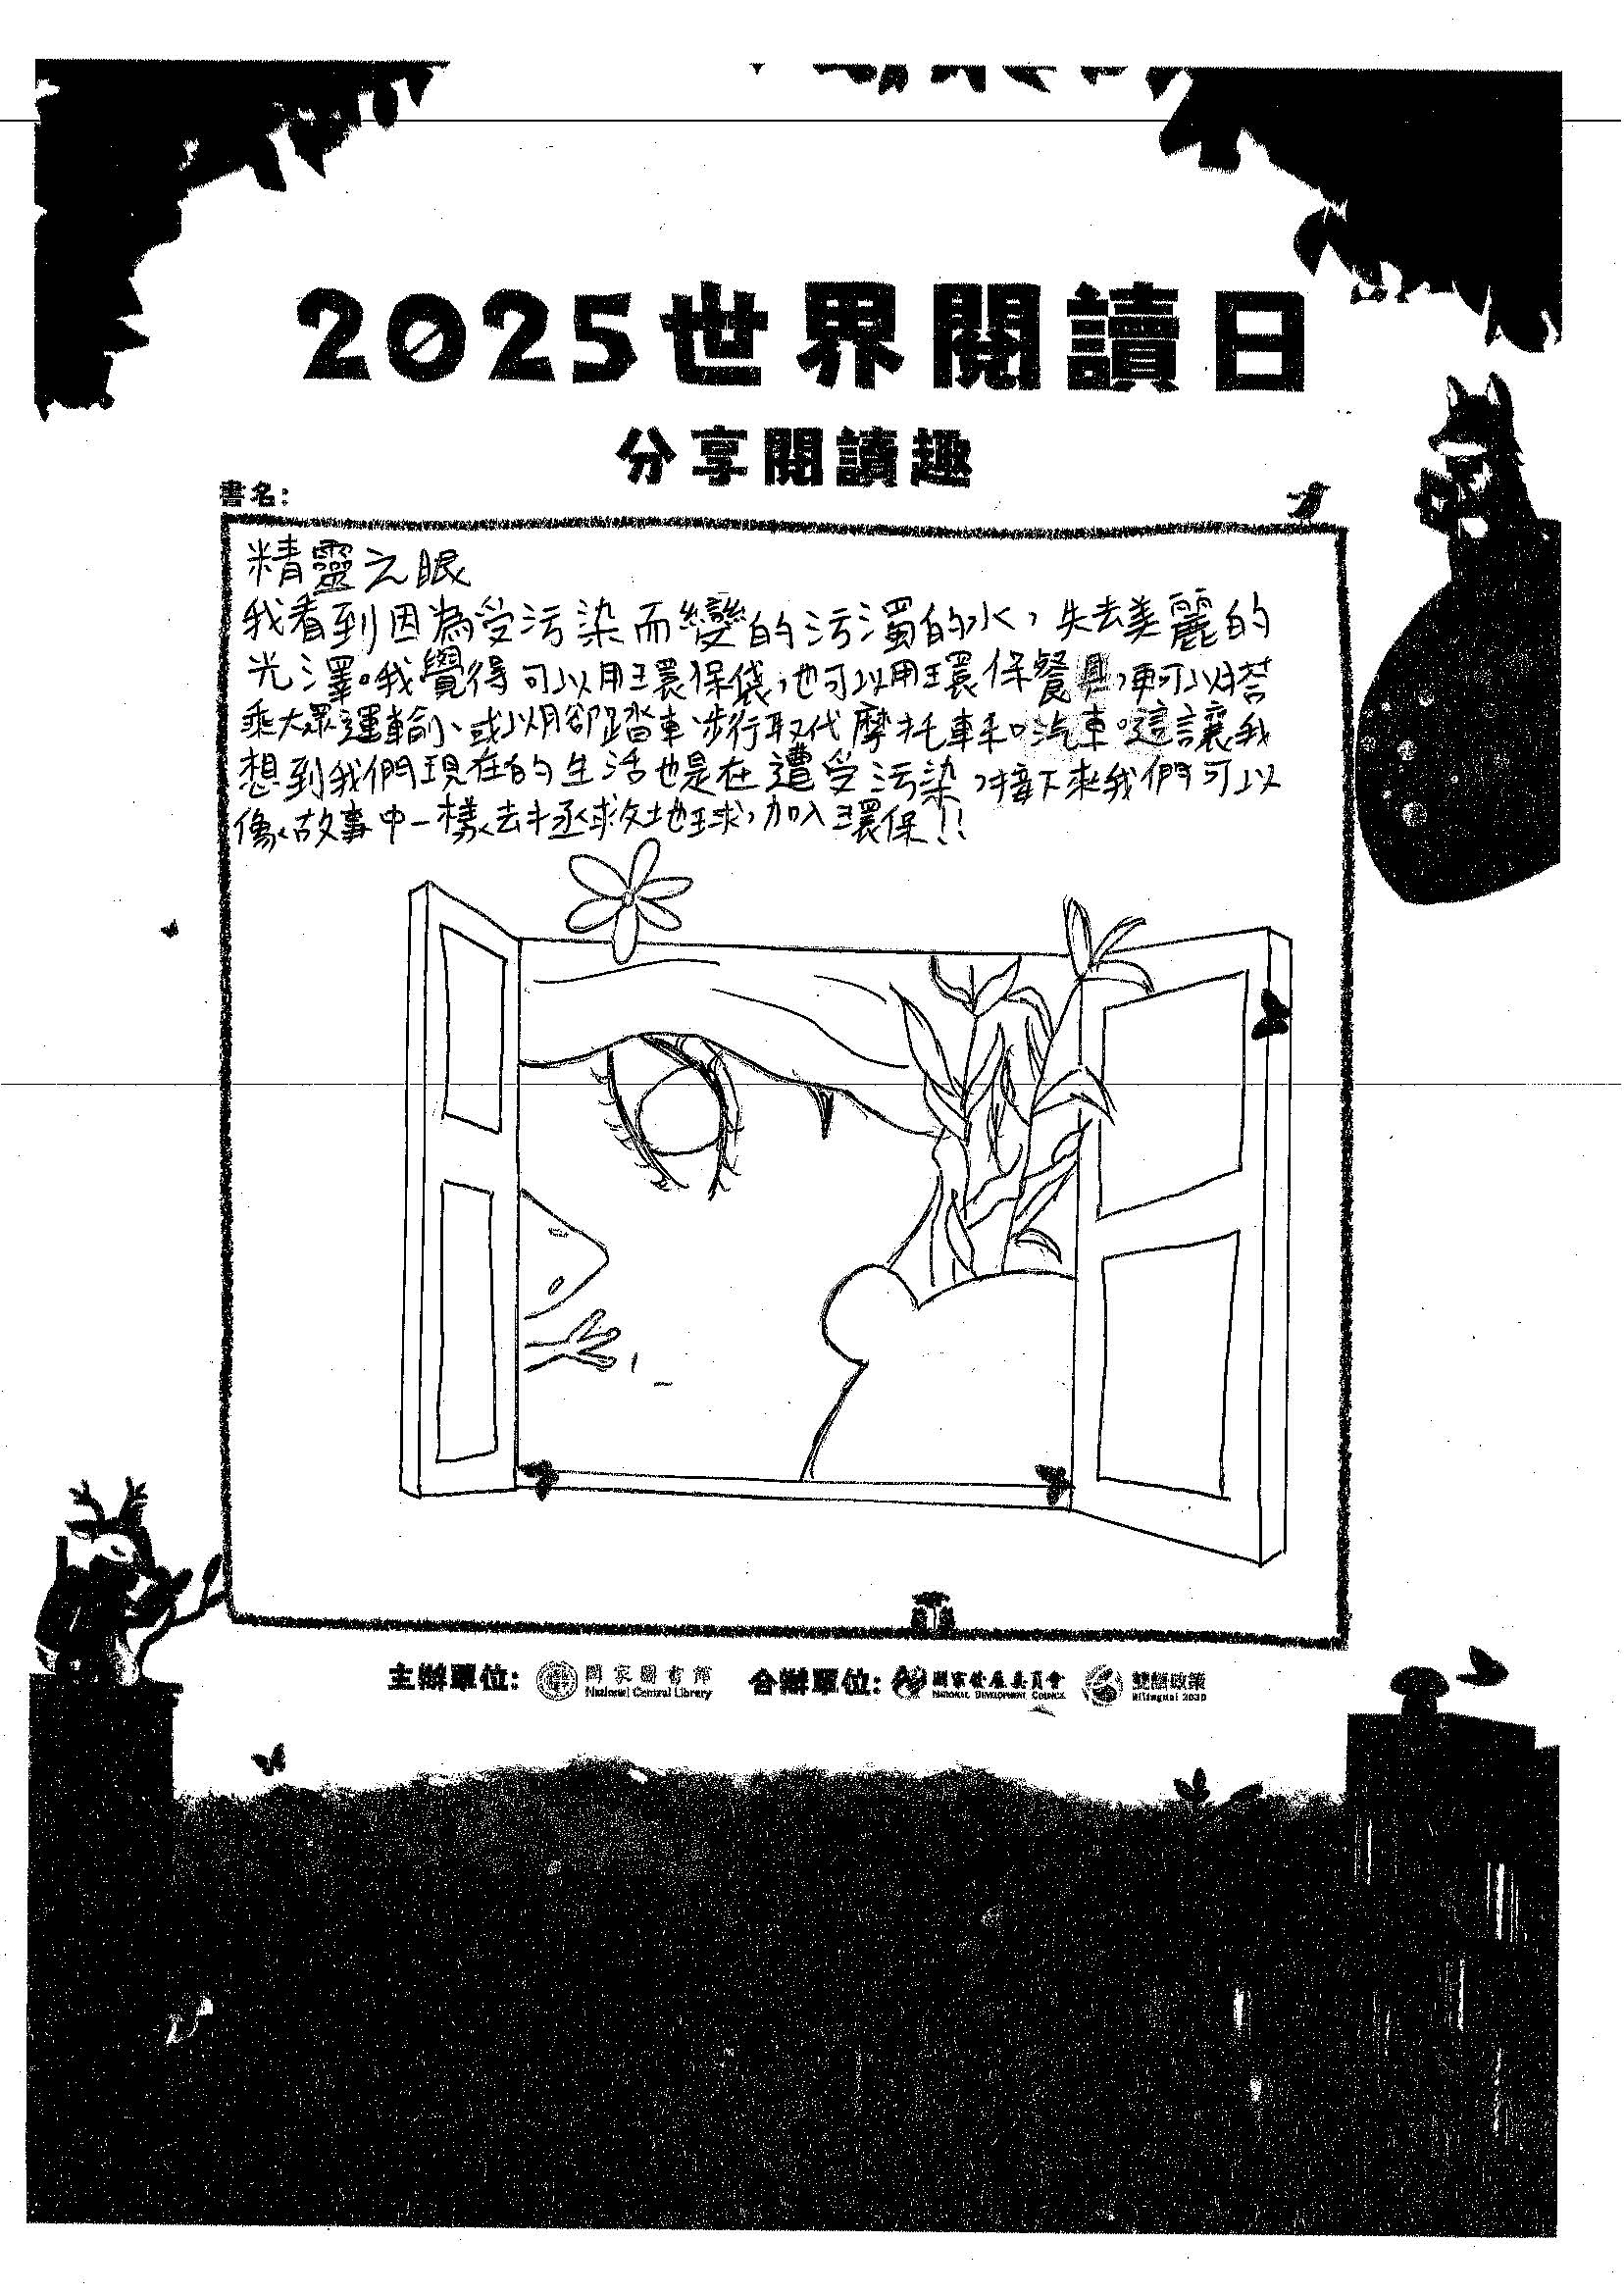 2025世界閱讀日
分享閱讀趣
書名:
精靈之眼
我看到因為受污染而變的污濁的水,失去美麗的
光澤。我覺得可以用環保袋,也可以用環保餐具,更可以搭
乘大眾運輸、或以用腳踏車、步行取代摩托車和汽車。這讓我
想到我們現在的生活也是在遭受污染,接下來我們可以
像故事中一樣去拯救地球,加入環保!!
主辦單位: 國家圖書館 National Central Library 合辦單位: 國家發展委員會 NATIONAL DEVELOPMENT COUNCIL 雙語政策 Bilingual 2030